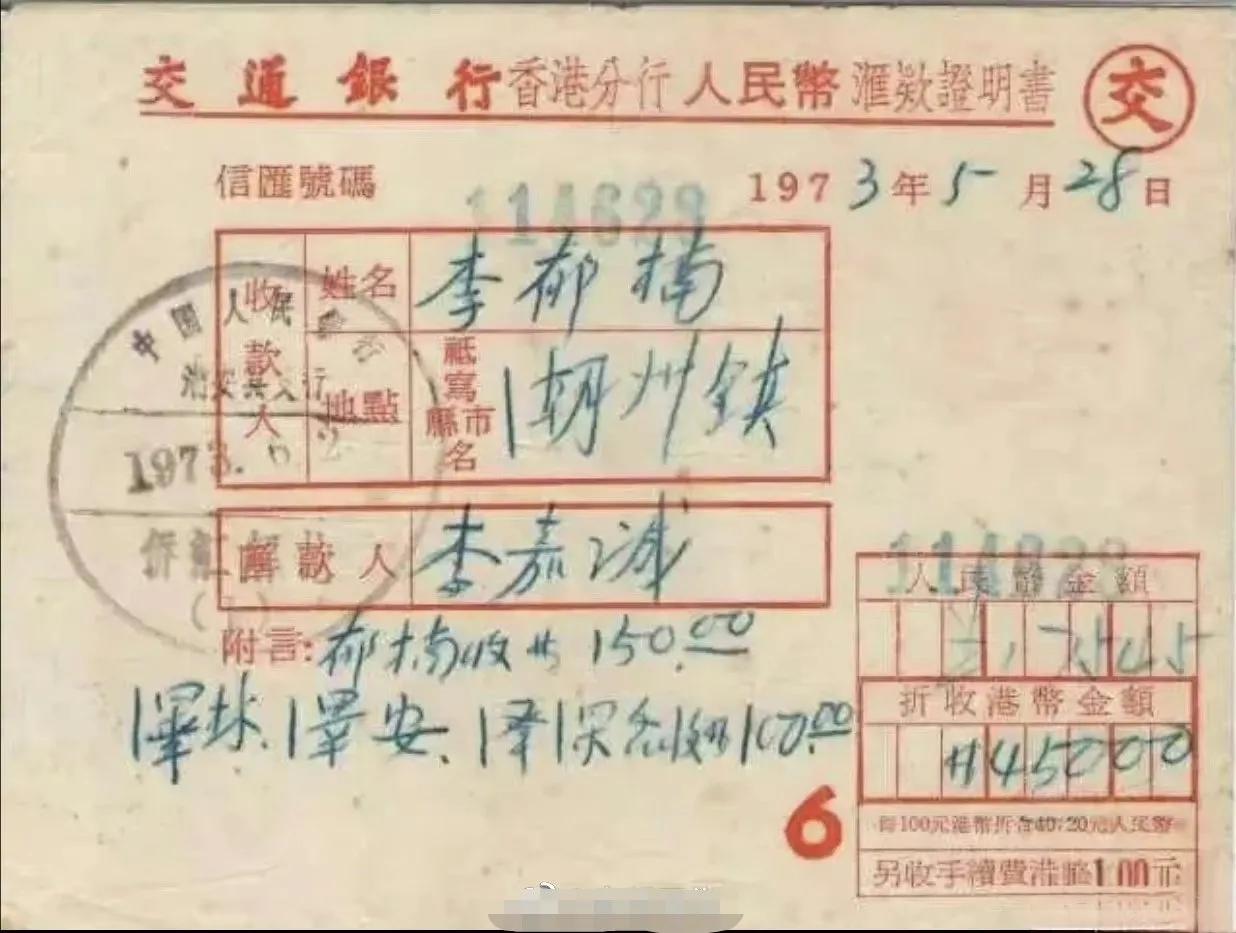 交通銀行香港分行人民幣滙款證明書 交
信匯號碼 1973年5月28日
114623
收款人 姓名 李郁楠
地點 祗寫縣市名 潮州鎮
中国人民銀行
1973.
解款人 李嘉诚
附言:郁楠收廿150.00
澤林、澤安、澤深各收廿100.00
人民幣金額
折收港幣金額
廿45000
6
每100元港幣折合40.20元人民幣
另收手續費港幣1.00元